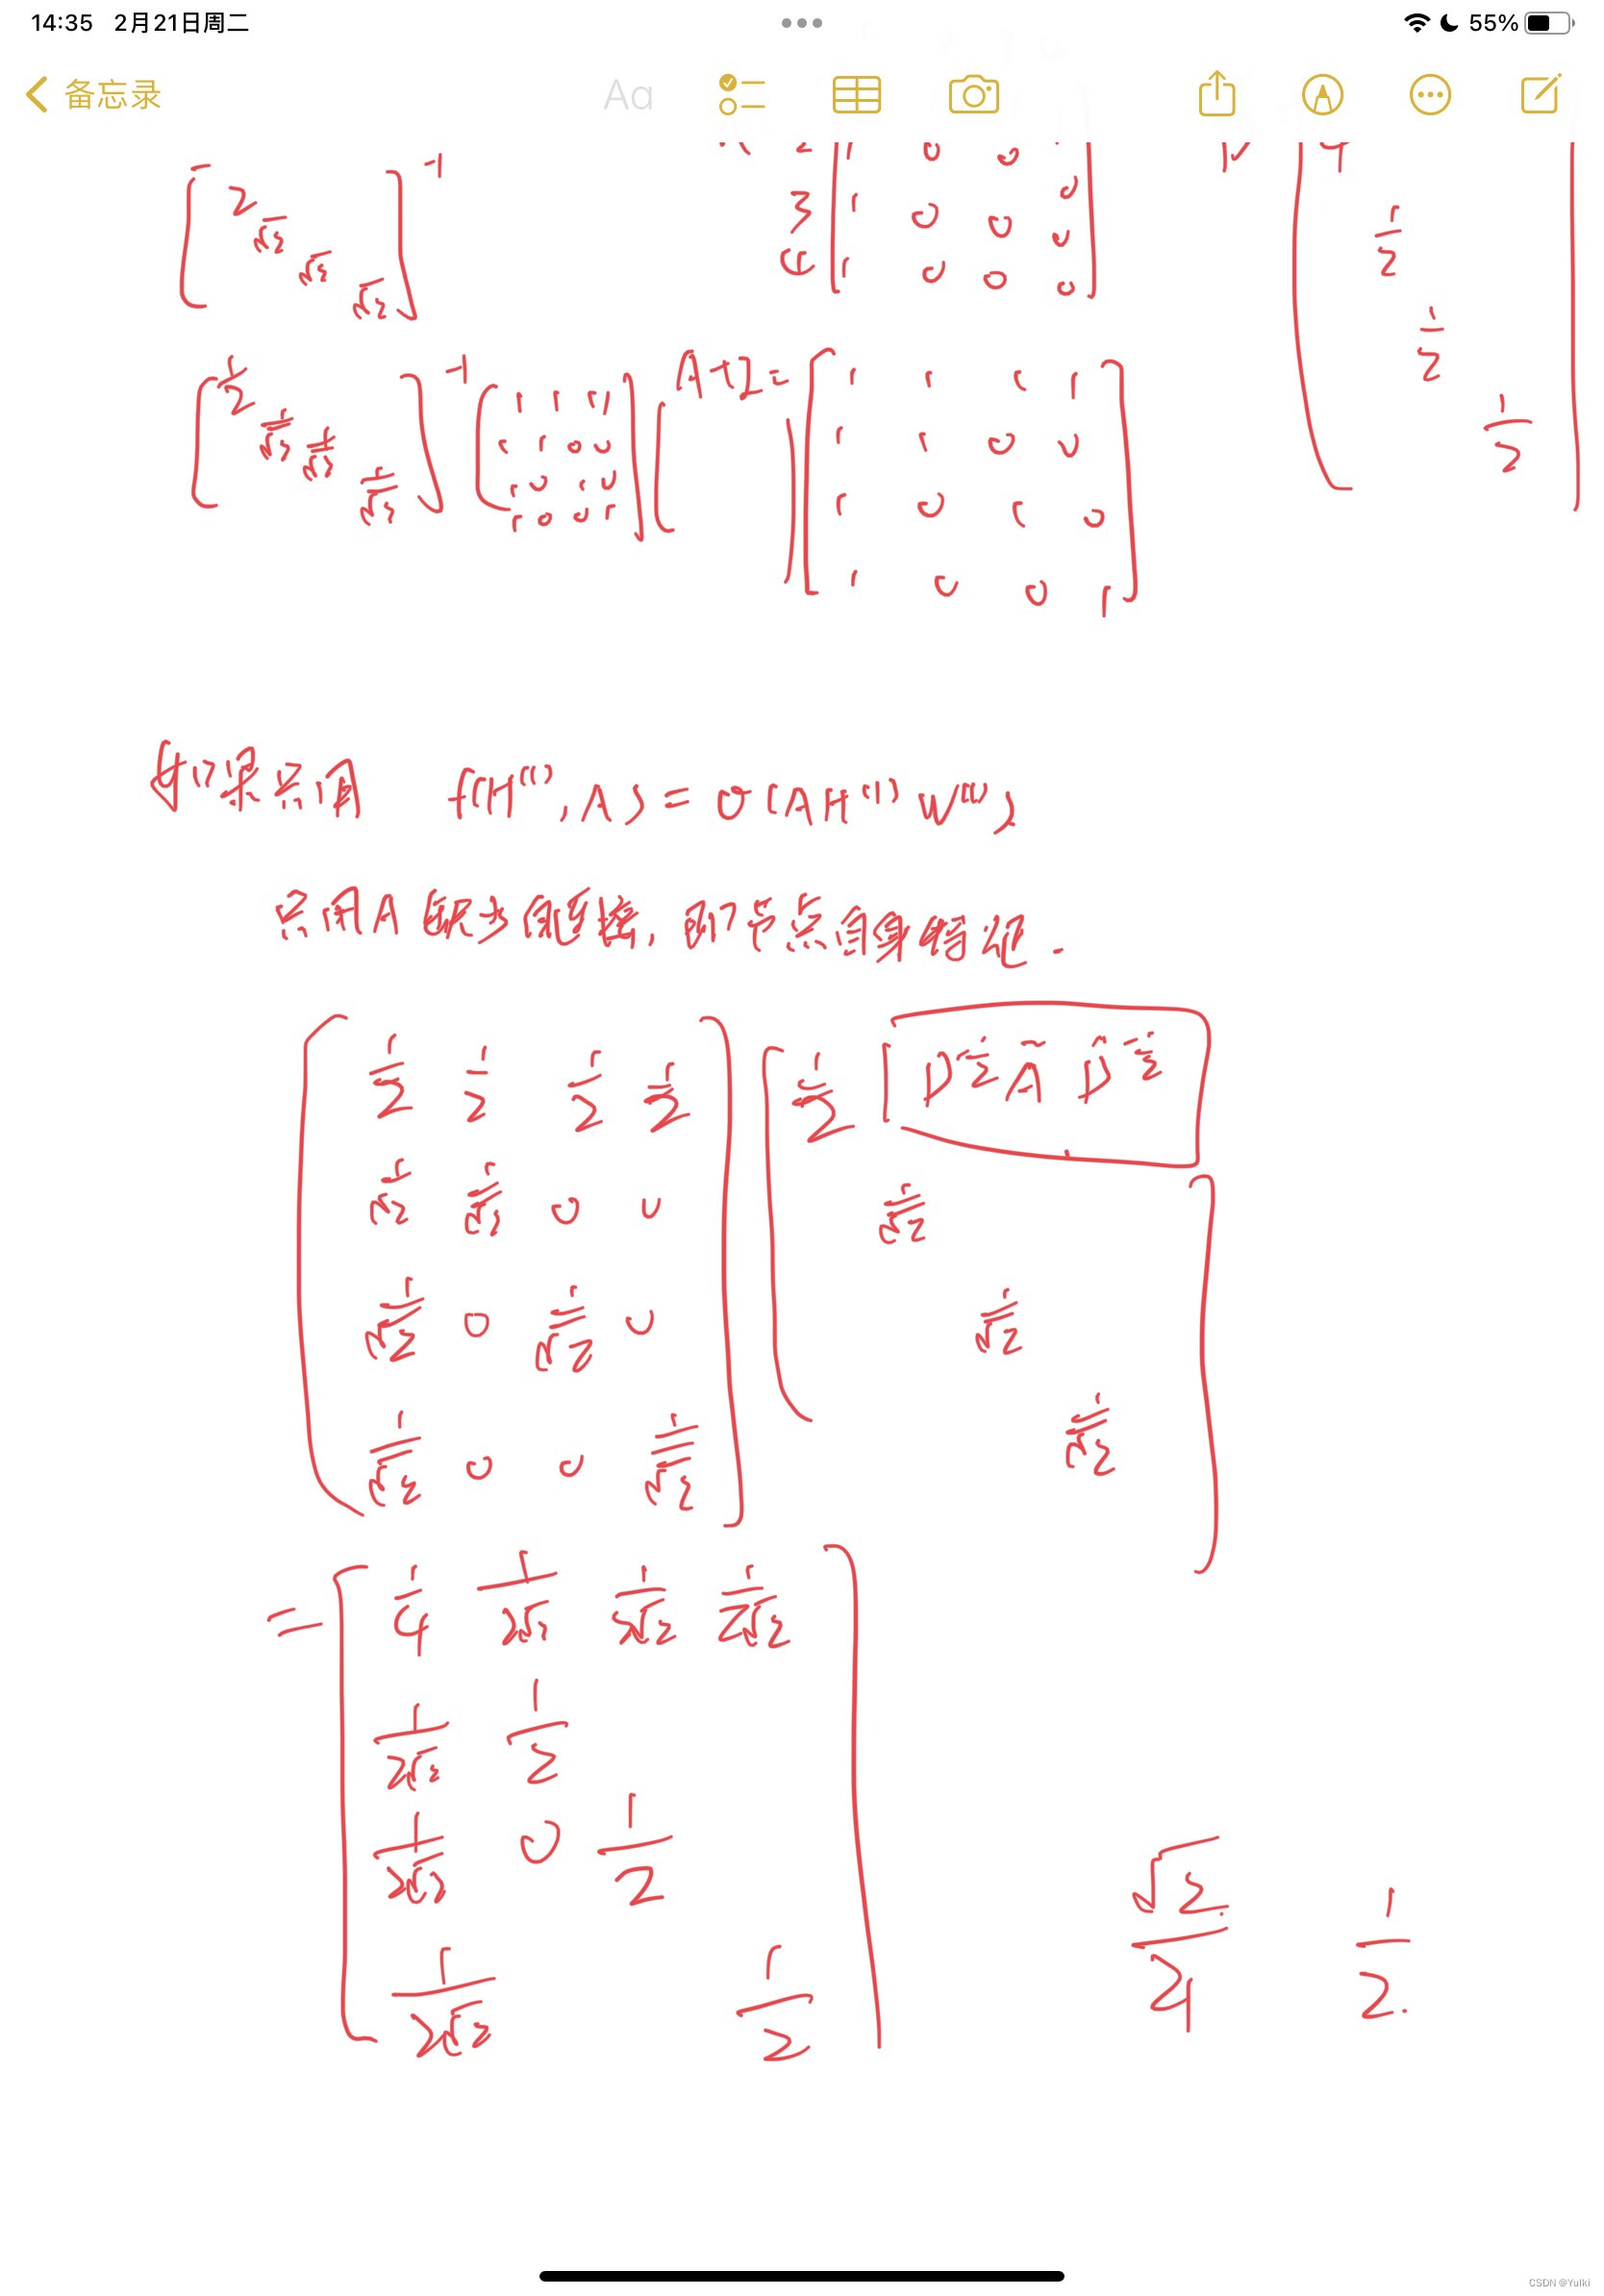 14:35 2月21日周二 55%
备忘录 Aa
[2 √2 √2 √2]⁻¹
2 1 0 0
3 1 0 0 0
4 1 0 0 0
4 1/2 1/2 1/2
[1/2 1/√2 1/√2 1/√2]⁻¹ [1 1 1 1
1 1 0 0
1 0 1 0
1 0 0 1] [ ]
A+I = [1 1 1 1
1 1 0 0
1 0 1 0
1 0 0 1]
如果只用 f(H⁽ˡ⁾, A) = σ(AH⁽ˡ⁾W⁽ˡ⁾)
只用A缺少自连接,即节点自身特征.
D̃^(-1/2) Ã D̃^(-1/2)
[1/2 1/2 1/2 1/2
1/√2 1/√2 0 0
1/√2 0 1/√2 0
1/√2 0 0 1/√2]
[1/2
1/√2
1/√2
1/√2]
= [1/4 1/2√2 1/2√2 1/2√2
1/2√2 1/2
1/2√2 0 1/2
1/2√2 1/2]
√2/4 1/2
CSDN @Yulki